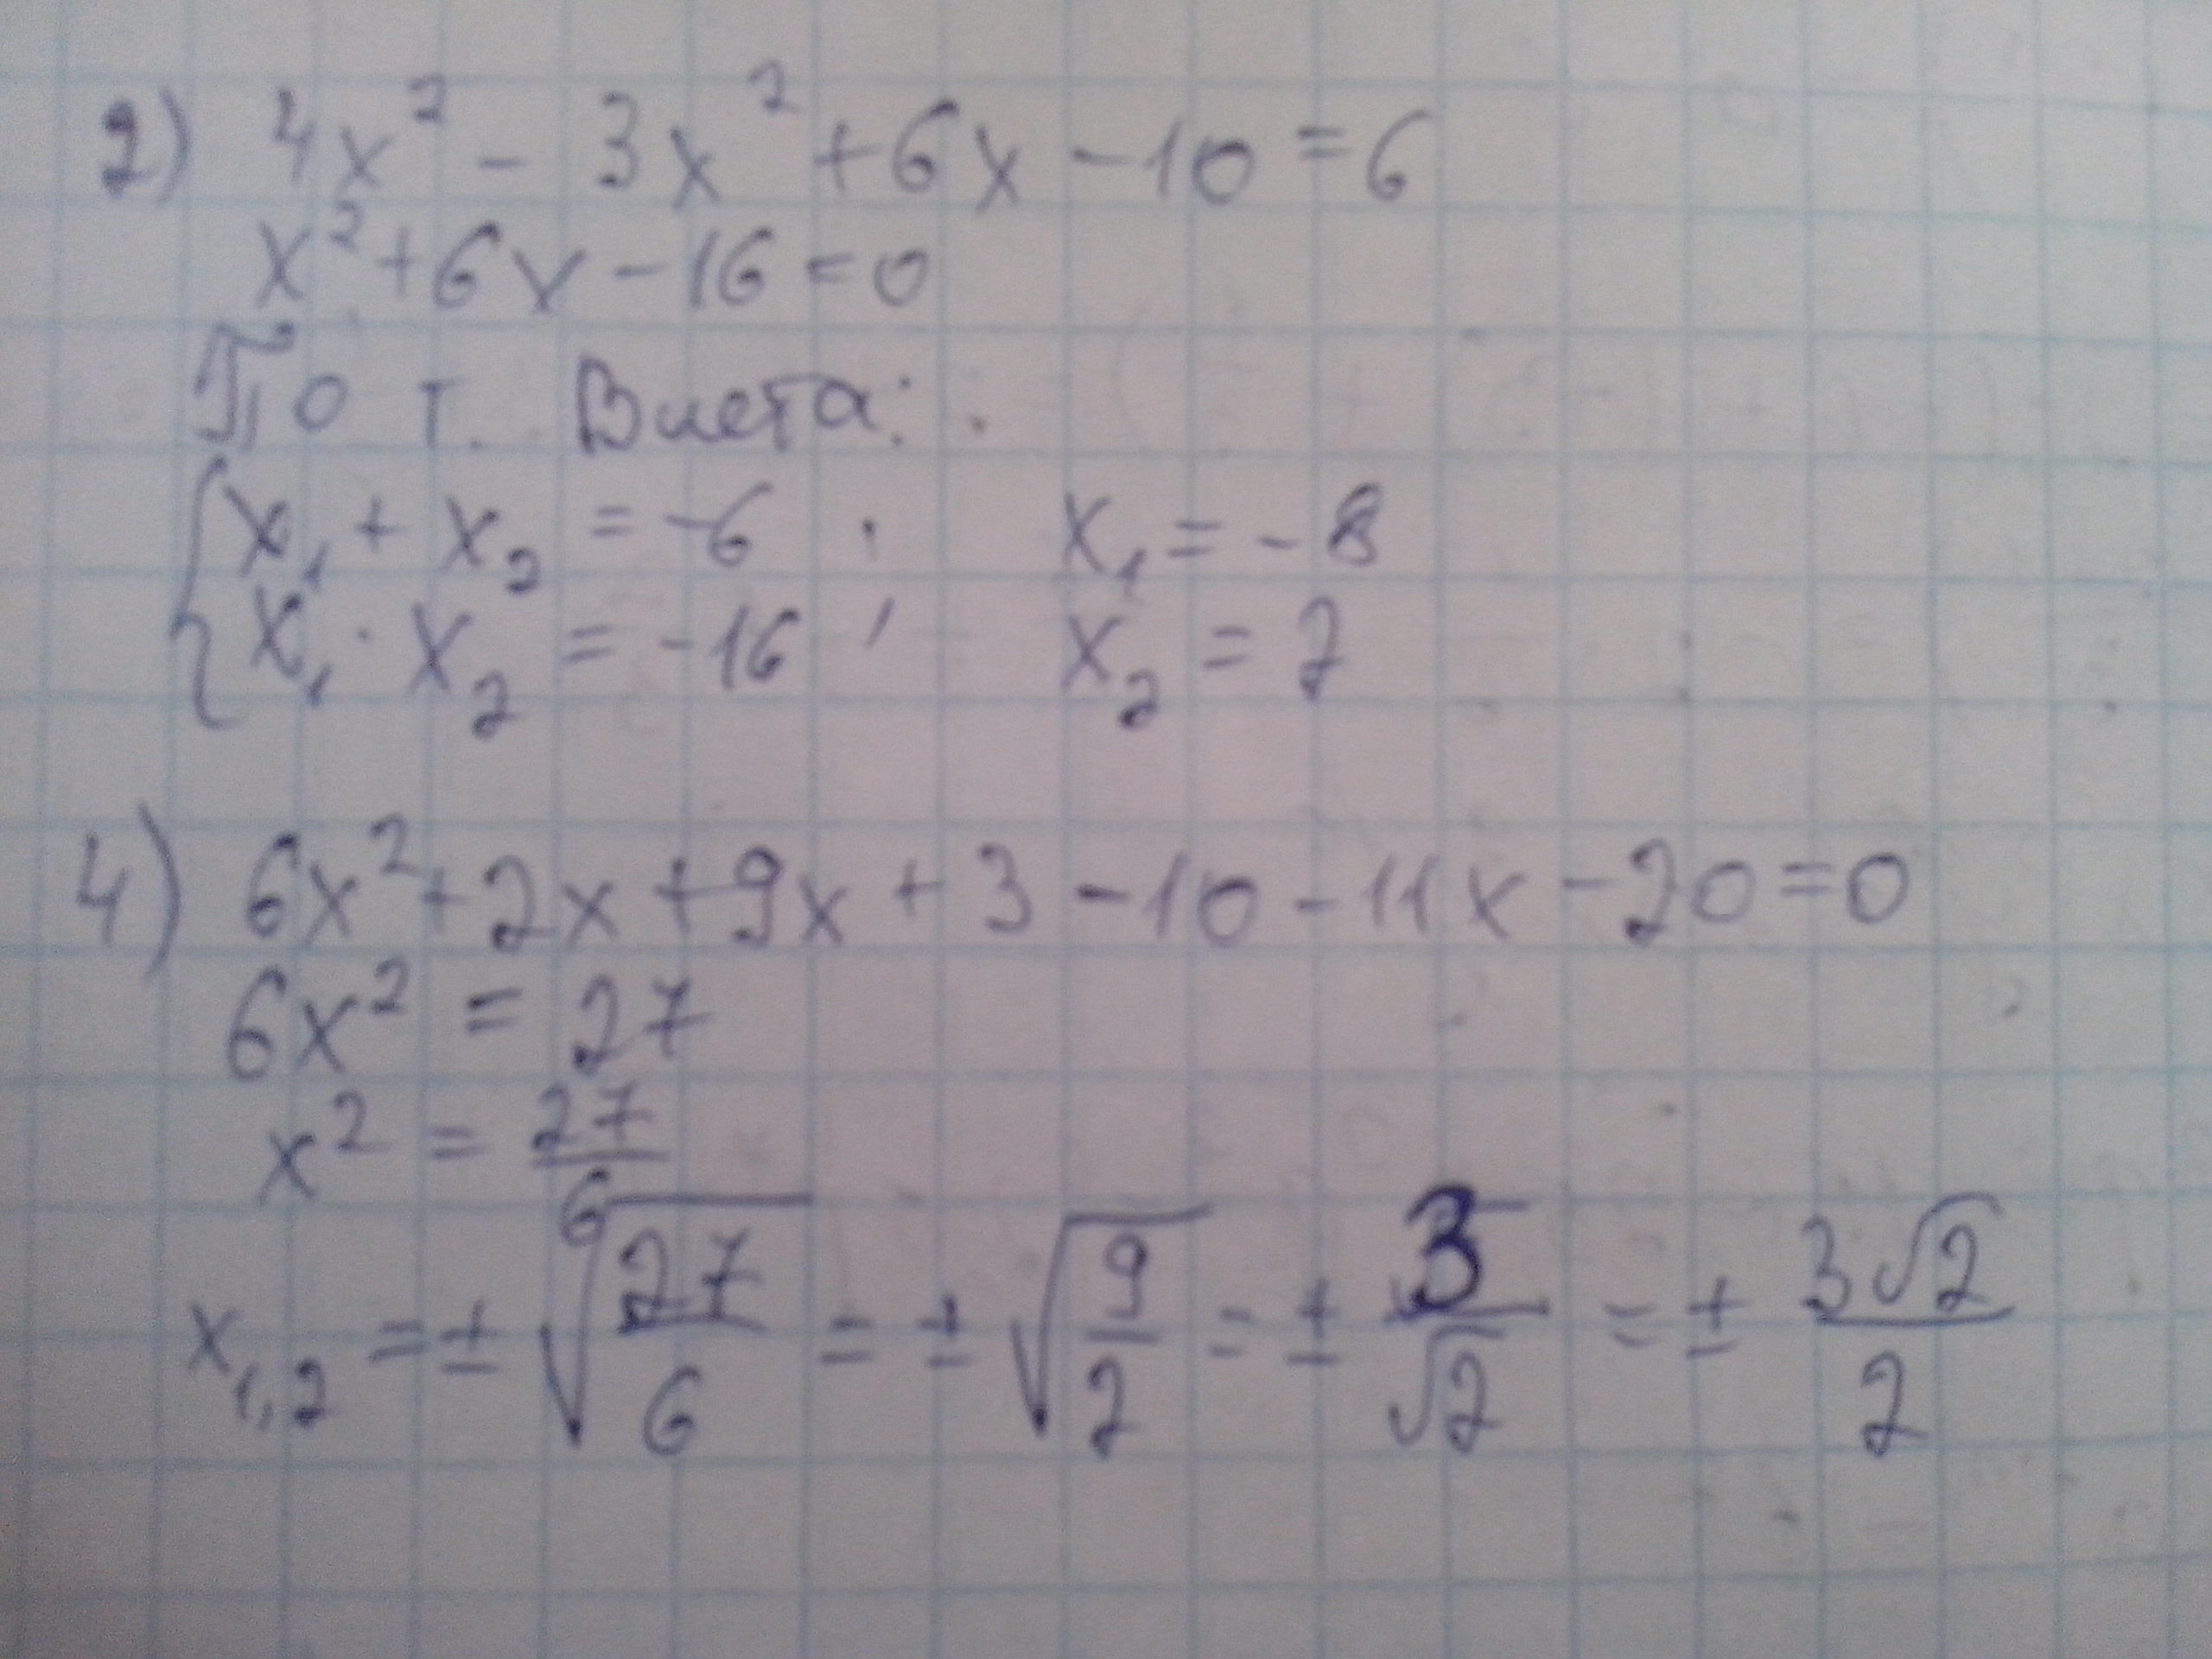 2) 4x² - 3x² + 6x - 10 = 6
x² + 6x - 16 = 0
По т. Виета:
{ x₁ + x₂ = -6 ; x₁ = -8
x₁ · x₂ = -16 x₂ = 2
4) 6x² + 2x + 9x + 3 - 10 - 11x - 20 = 0
6x² = 27
x² = 27/6
x₁,₂ = ± √(27/6) = ± √(9/2) = ± 3/√2 = ± 3√2/2